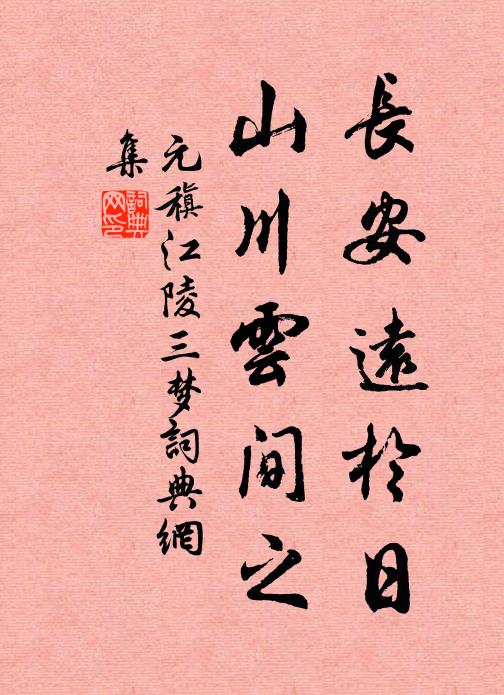 長安遠於日
山川雲間之
元稹江陵三梦詞典網
集
詞典
网印